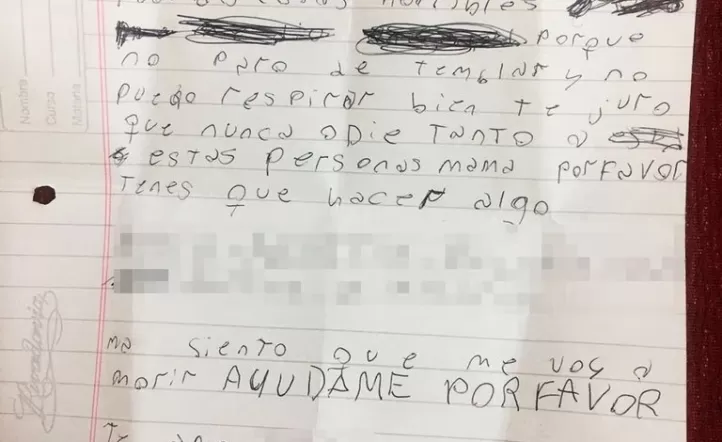 porque
no paro de temblar y no
puedo respirar bien te juro
que nunca odie TANTO a
estas personas mama porfavor
Tenes que hacer algo
me siento que me voy a
morir AYUDAME POR FAVOR
Nombre
Curso
Materia
Rivadavia